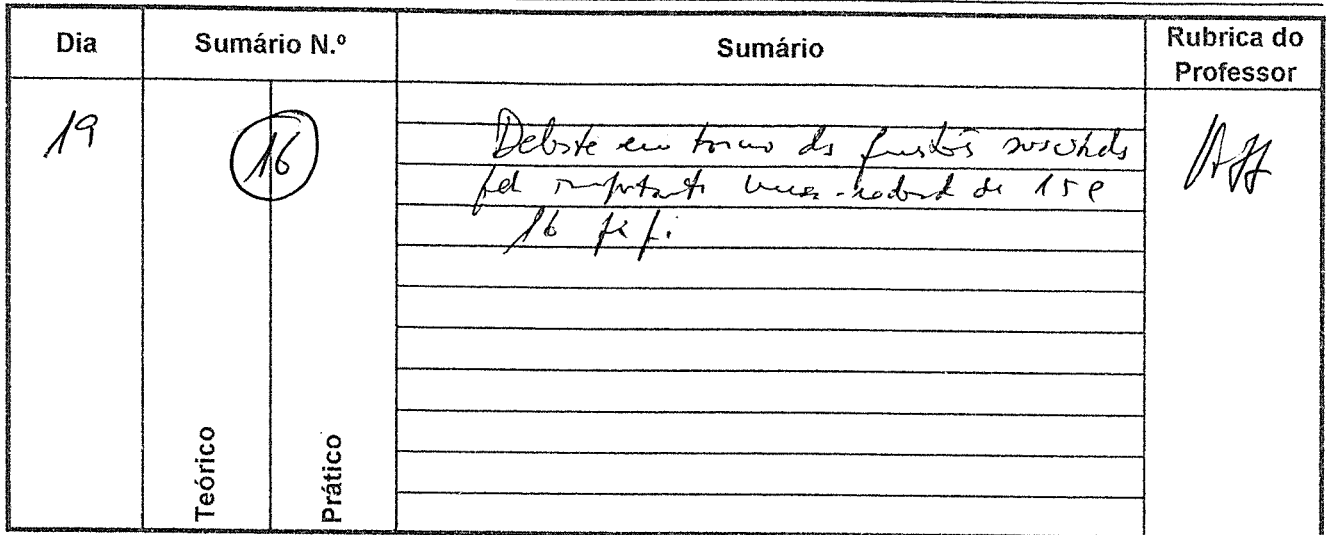 Dia
Sumário N.º
Sumário
Rubrica do
Professor
19
16
Debate em torno das questões suscitadas
pela importante mesa-redonda de 15 e
16
Teórico
Prático